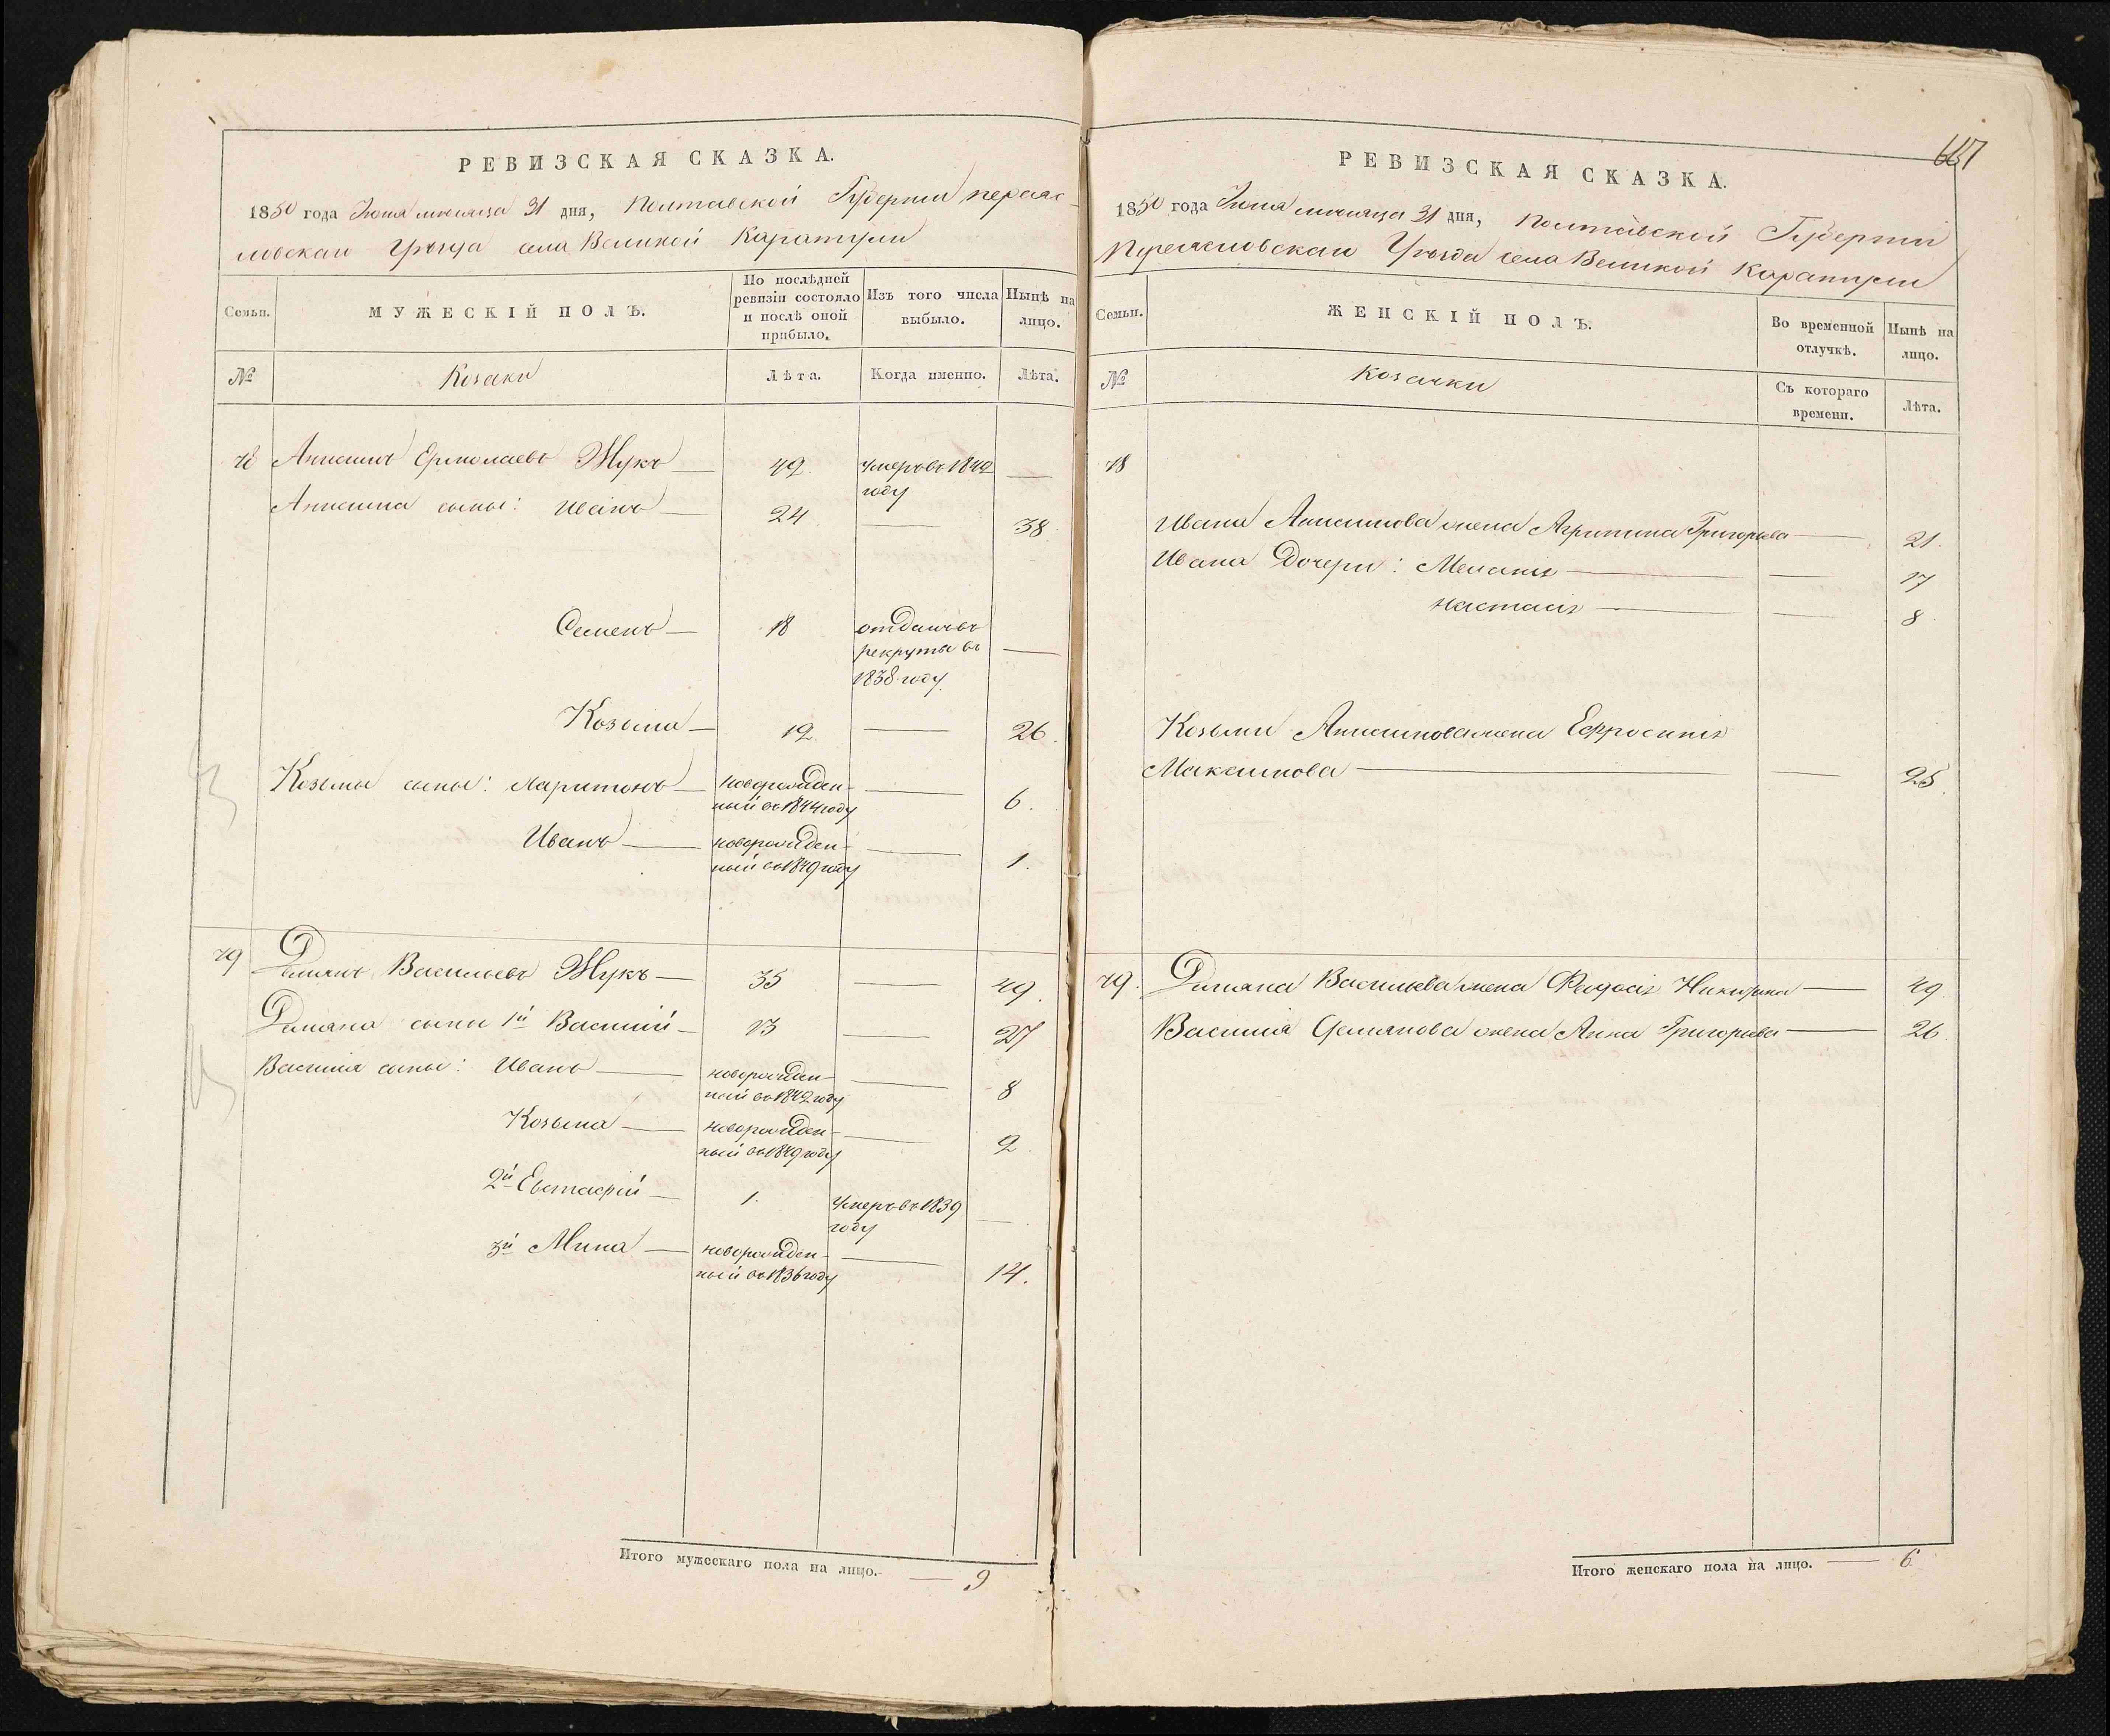 РЕВИЗСКАЯ СКАЗКА.
1850 года Июня месяца 31 дня, Полтавской Губернии Переяс-
ловскаго Уезда села Великой Каратули
Семьи.
МУЖЕСКІЙ ПОЛЪ.
По послѣдней ревизіи состояло и послѣ оной прибыло.
Изъ того числа выбыло.
Нынѣ на лицо.
№
Козаки
Лѣта.
Когда именно.
Лѣта.
78 Анисимъ Ермолаевъ Жукъ — 49 умеръ въ 1842 году —
Анисима сыны: Иванъ — 24 — 38.
Семенъ — 18 отданъ въ рекруты въ 1838 году —
Козьма — 12. — 26.
Козьмы сыны: Харитонъ — новорожден-
ный въ 1844 году — 6.
Иванъ — новорожден-
ный въ 1849 году — 1.
79 Демянъ Васильевъ Жукъ — 35 — 49.
Демяна сыны 1й Василій — 13 — 27
Василія сыны: Иванъ — новорожден-
ный въ 1842 году — 8
Козьма — новорожден-
ный въ 1849 году — 2.
2й Евстафій — 1. умеръ въ 1839 году —
3й Мина — новорожден-
ный въ 1836 году — 14.
Итого мужескаго пола на лицо. — 9
РЕВИЗСКАЯ СКАЗКА.
1850 года Июня месяца 31 дня, Полтавской Губерніи
Переясловскаго Уезда села Великой Каратули
Семьи.
ЖЕНСКІЙ ПОЛЪ.
Во временной отлучкѣ.
Нынѣ на лицо.
№
Козачки
Съ котораго времени.
Лѣта.
78
Ивана Анисимова жена Агрипина Григорьева — 21.
Ивана Дочери: Меланія — — 17
Настасія — — 8.
Козьмы Анисимова жена Ефросинія
Максимова — — 25.
79. Демяна Васильева жена Феодосія — 49.
Василія Демянова жена Анна Григорьева — 26.
Итого женскаго пола на лицо. — 6